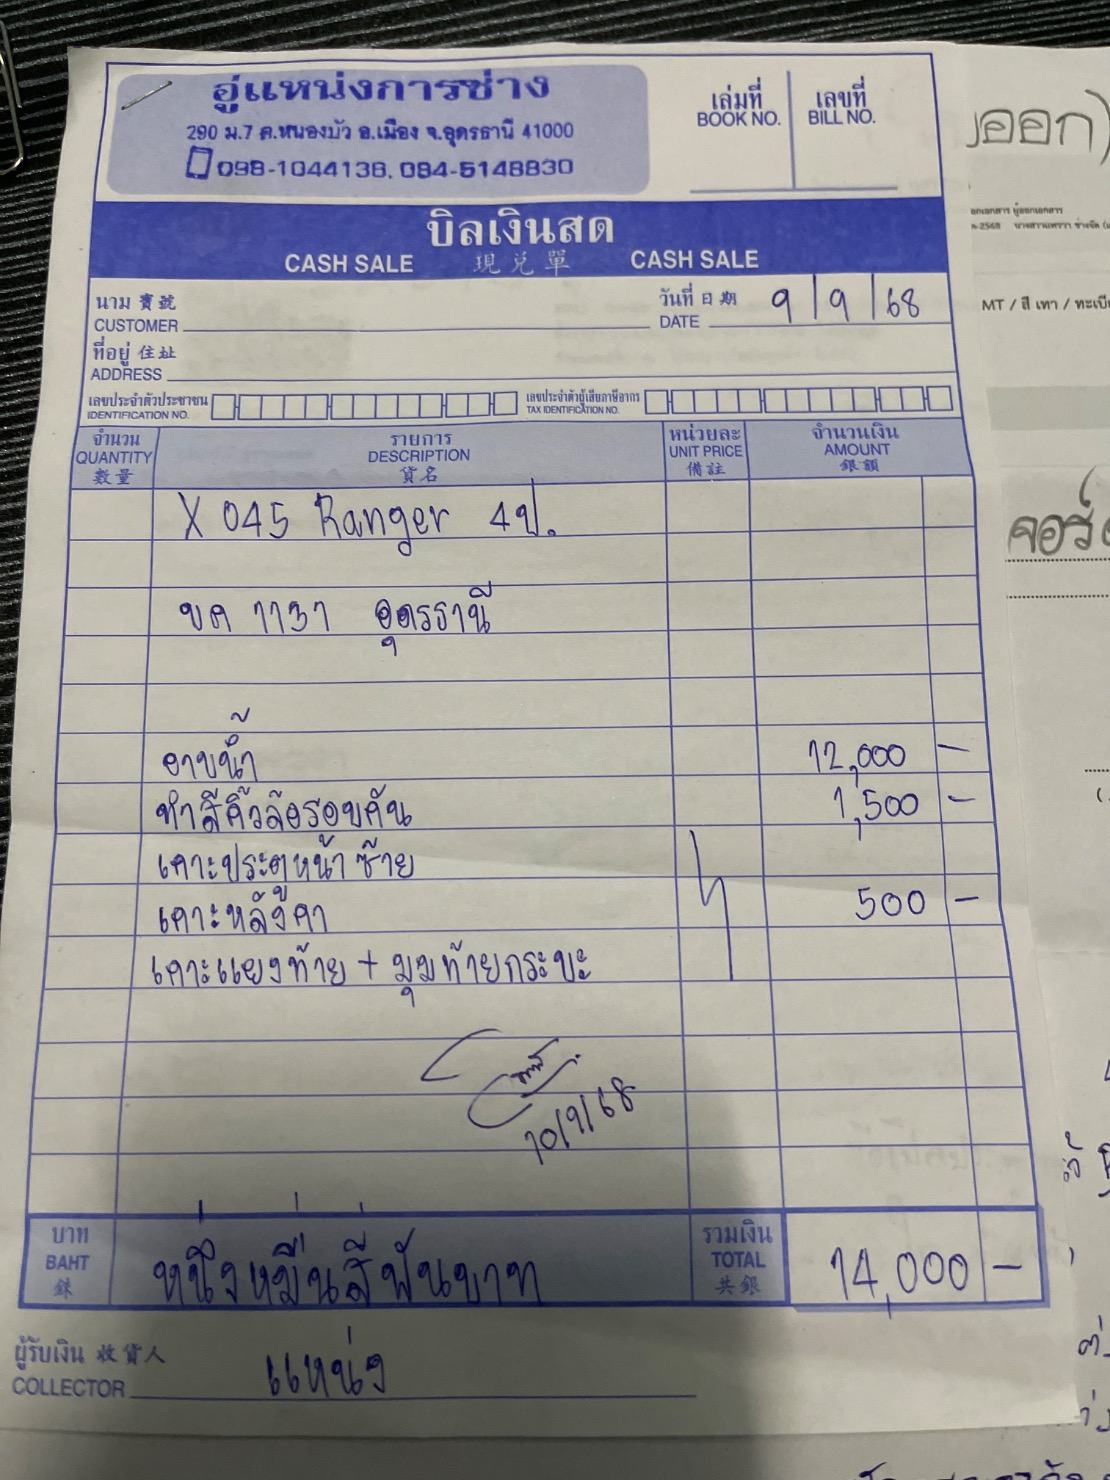 อู่แหน่งการช่าง
290 ม.7 ต.หนองบัว อ.เมือง จ.อุดรธานี 41000
098-1044138, 084-5148830
เล่มที่ เลขที่
BOOK NO. BILL NO.
บิลเงินสด
CASH SALE 現兌單 CASH SALE
นาม 寶號
CUSTOMER
วันที่ 日期
DATE 9/9/68
ที่อยู่ 住址
ADDRESS
เลขประจำตัวประชาชน
IDENTIFICATION NO.
เลขประจำตัวผู้เสียภาษีอากร
TAX IDENTIFICATION NO.
จำนวน รายการ หน่วยละ จำนวนเงิน
QUANTITY DESCRIPTION UNIT PRICE AMOUNT
數量 貨名 備註 銀額
X 045 Ranger 4ป.
ขค 1131 อุดรธานี
อาบน้ำ 12,000 –
ทำสีคิ้วล้อรอบคัน 1,500 –
เคาะประตูหน้าซ้าย
เคาะหลังคา 500 –
เคาะแยงท้าย + มุมท้ายกระบะ
10/9/68
บาท หนึ่งหมื่นสี่พันบาท รวมเงิน 14,000 –
BAHT TOTAL
銖 共銀
ผู้รับเงิน 收貨人
COLLECTOR แหน่ง
งออก)
MT / สี เทา / ทะเบี